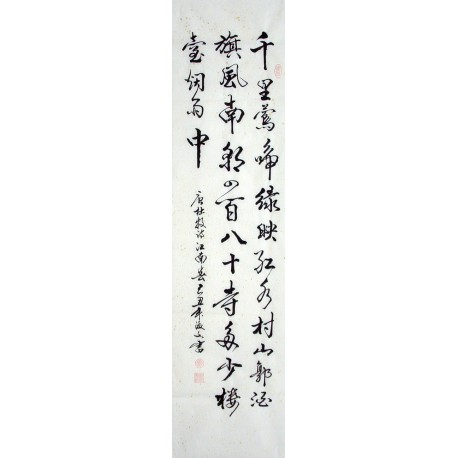 千里莺啼绿映红水村山郭酒
旗風南朝四百八十寺多少楼
臺烟雨中
唐杜牧诗江南春己丑年